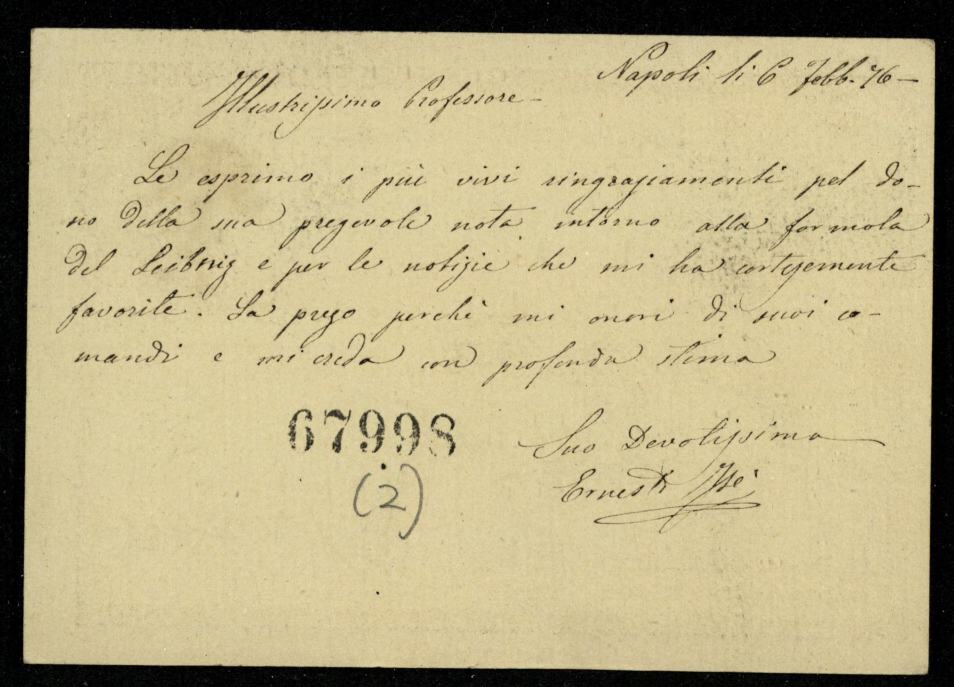 Napoli li 6 Febb. 76 –
Illustrissimo Professore –
Le esprimo i più vivi ringraziamenti pel do-
no della sua pregevole nota intorno alla formola
del Leibniz e per le notizie che mi ha cortesemente
favorite. La prego perchè mi onori di suoi co-
mandi e mi creda con profonda stima
67998
(2)
Suo Devotissimo
Ernesto